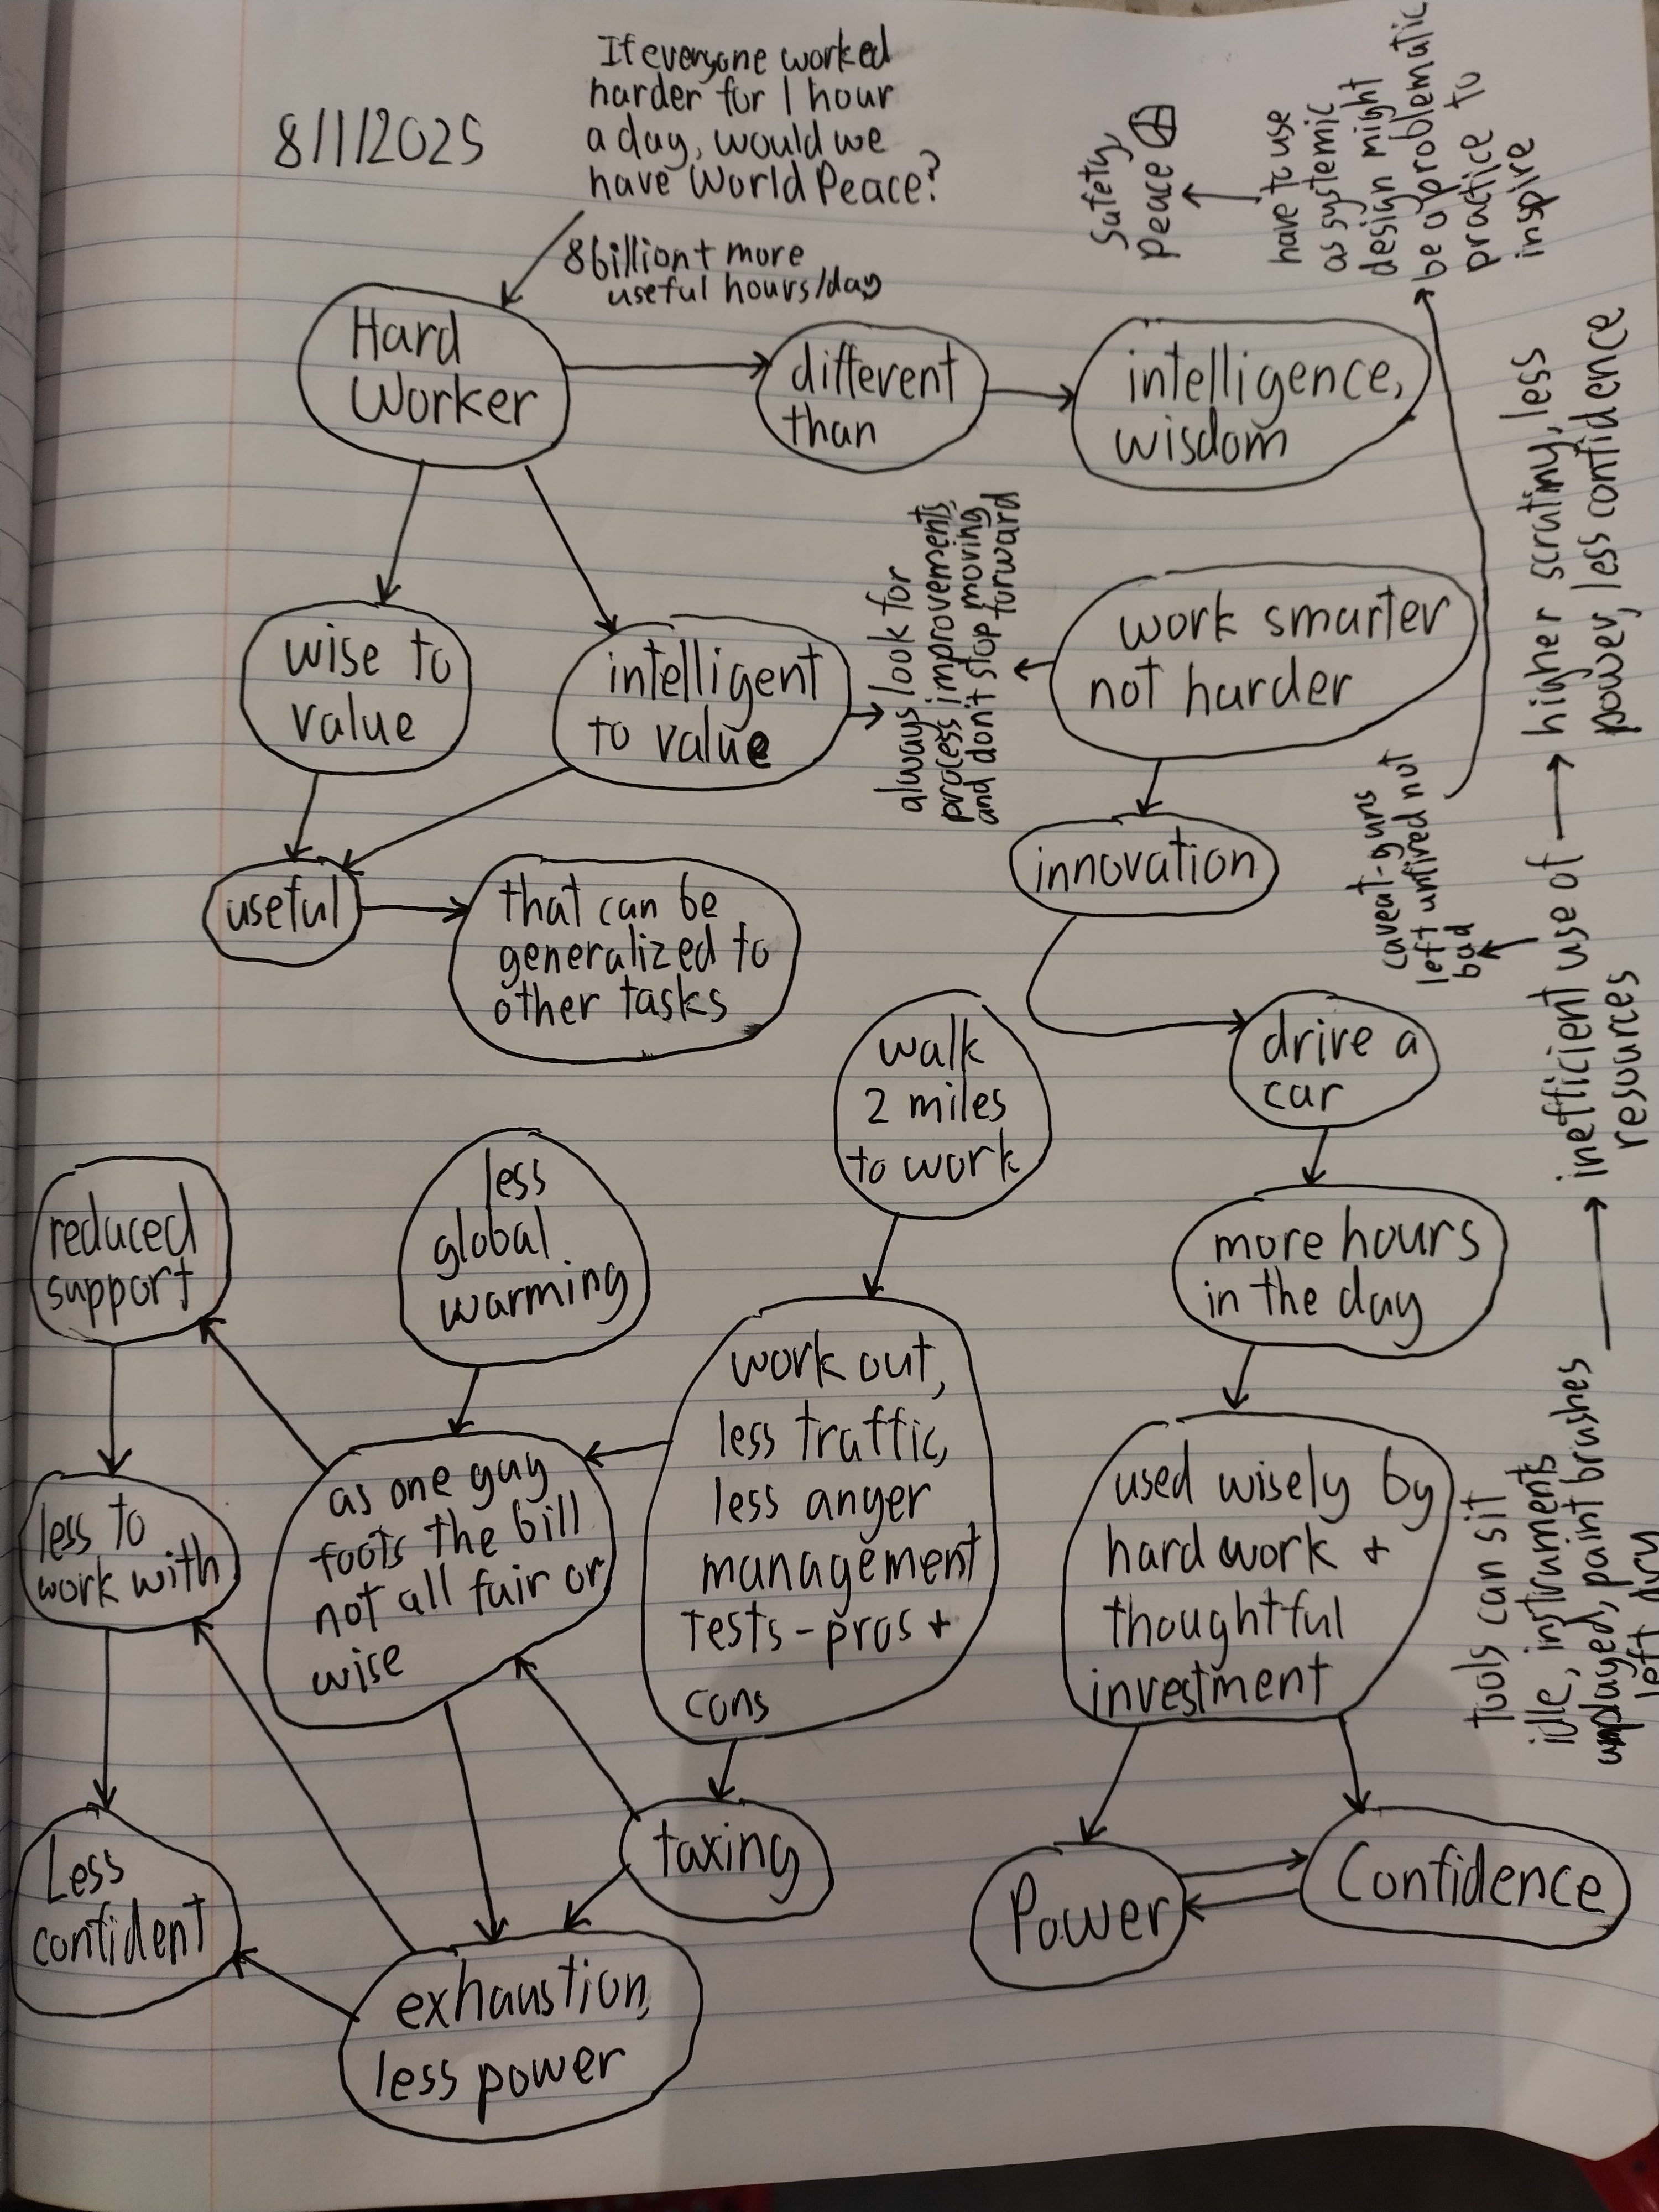 8/1/2025
If everyone worked
harder for 1 hour
a day, would we
have World Peace?
8 billion + more
useful hours/day
Safety,
Peace
have to use
as systemic
design might
be a problematic
practice to
inspire
Hard
Worker
different
than
intelligence,
wisdom
higher scrutiny, less
power, less confidence
wise to
value
intelligent
to value
always look for
process improvements,
and don't stop moving
forward
work smarter
not harder
useful
that can be
generalized to
other tasks
innovation
caveat-guns
left unfired not
bad
inefficient use of
resources
walk
2 miles
to work
drive a
car
reduced
support
less
global
warming
work out,
less traffic,
less anger
management
tests - pros +
cons
more hours
in the day
less to
work with
as one guy
foots the bill
not all fair or
wise
used wisely by
hard work +
thoughtful
investment
tools can sit
idle, instruments
unplayed, paint brushes
left dry
Less
confident
taxing
Power
Confidence
exhaustion,
less power